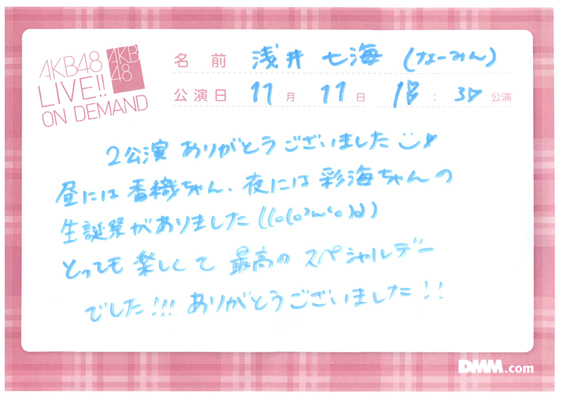 AKB48
LIVE!!
ON DEMAND
AKB
48
名前 浅井 七海 (なーみん)
公演日 11月 11日 18:30公演
2公演 ありがとうございました
昼には 香織ちゃん、夜には 彩海ちゃんの
生誕祭がありました
とっても 楽しくて 最高の スペシャルデー
でした!!! ありがとうございました!!
DMM.com